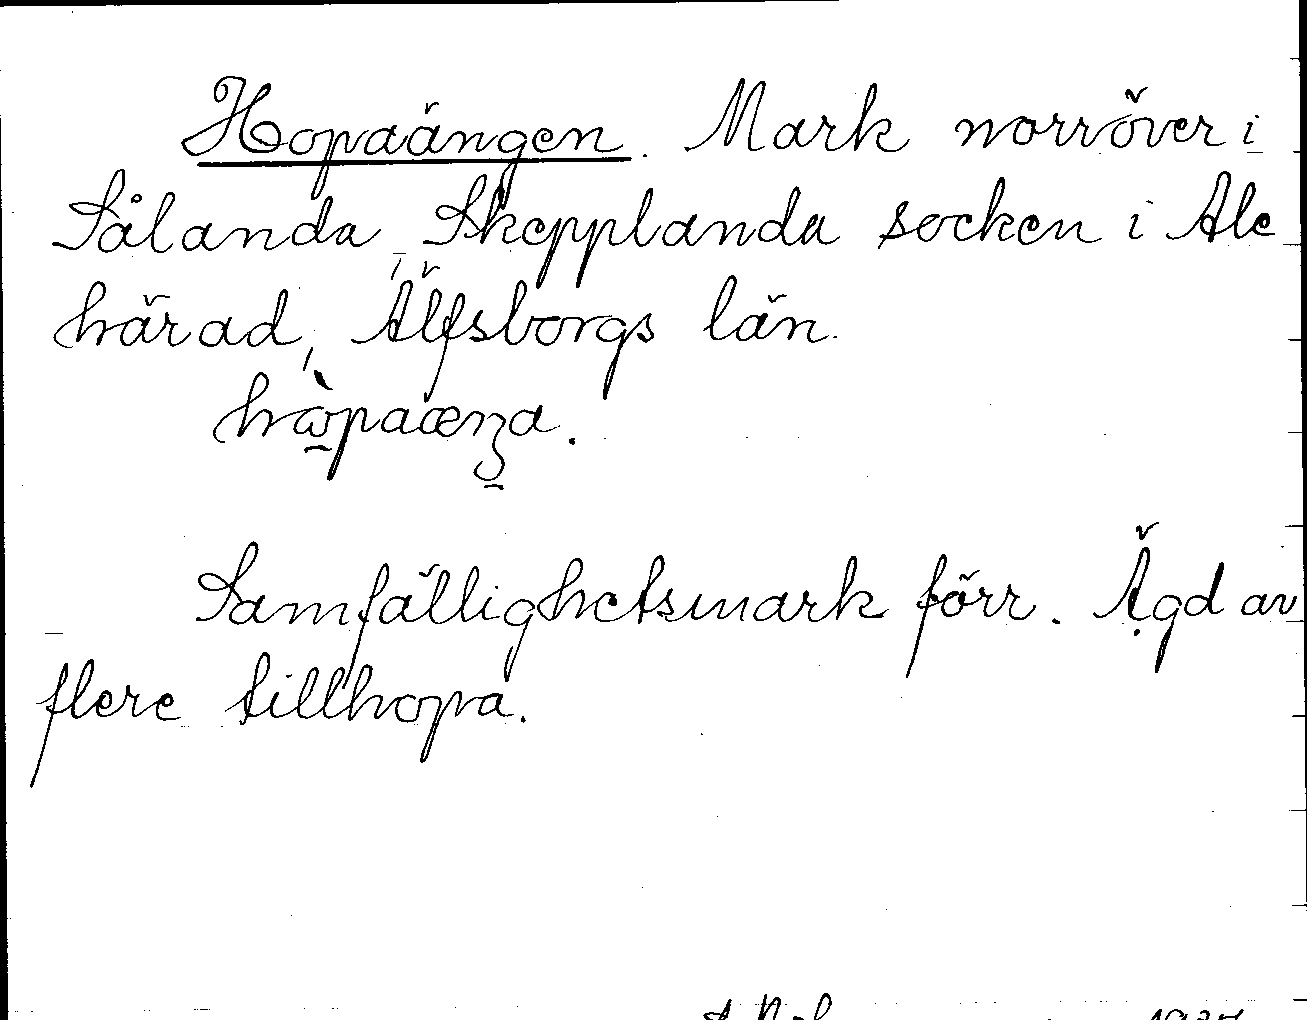 Hopaängen. Mark norröver i
Sålanda, Skepplanda socken i Ale
härad, Älfsborgs län.
hὼpaæŋa.
Samfällighetsmark förr. Ägd av
flere tillhopa.